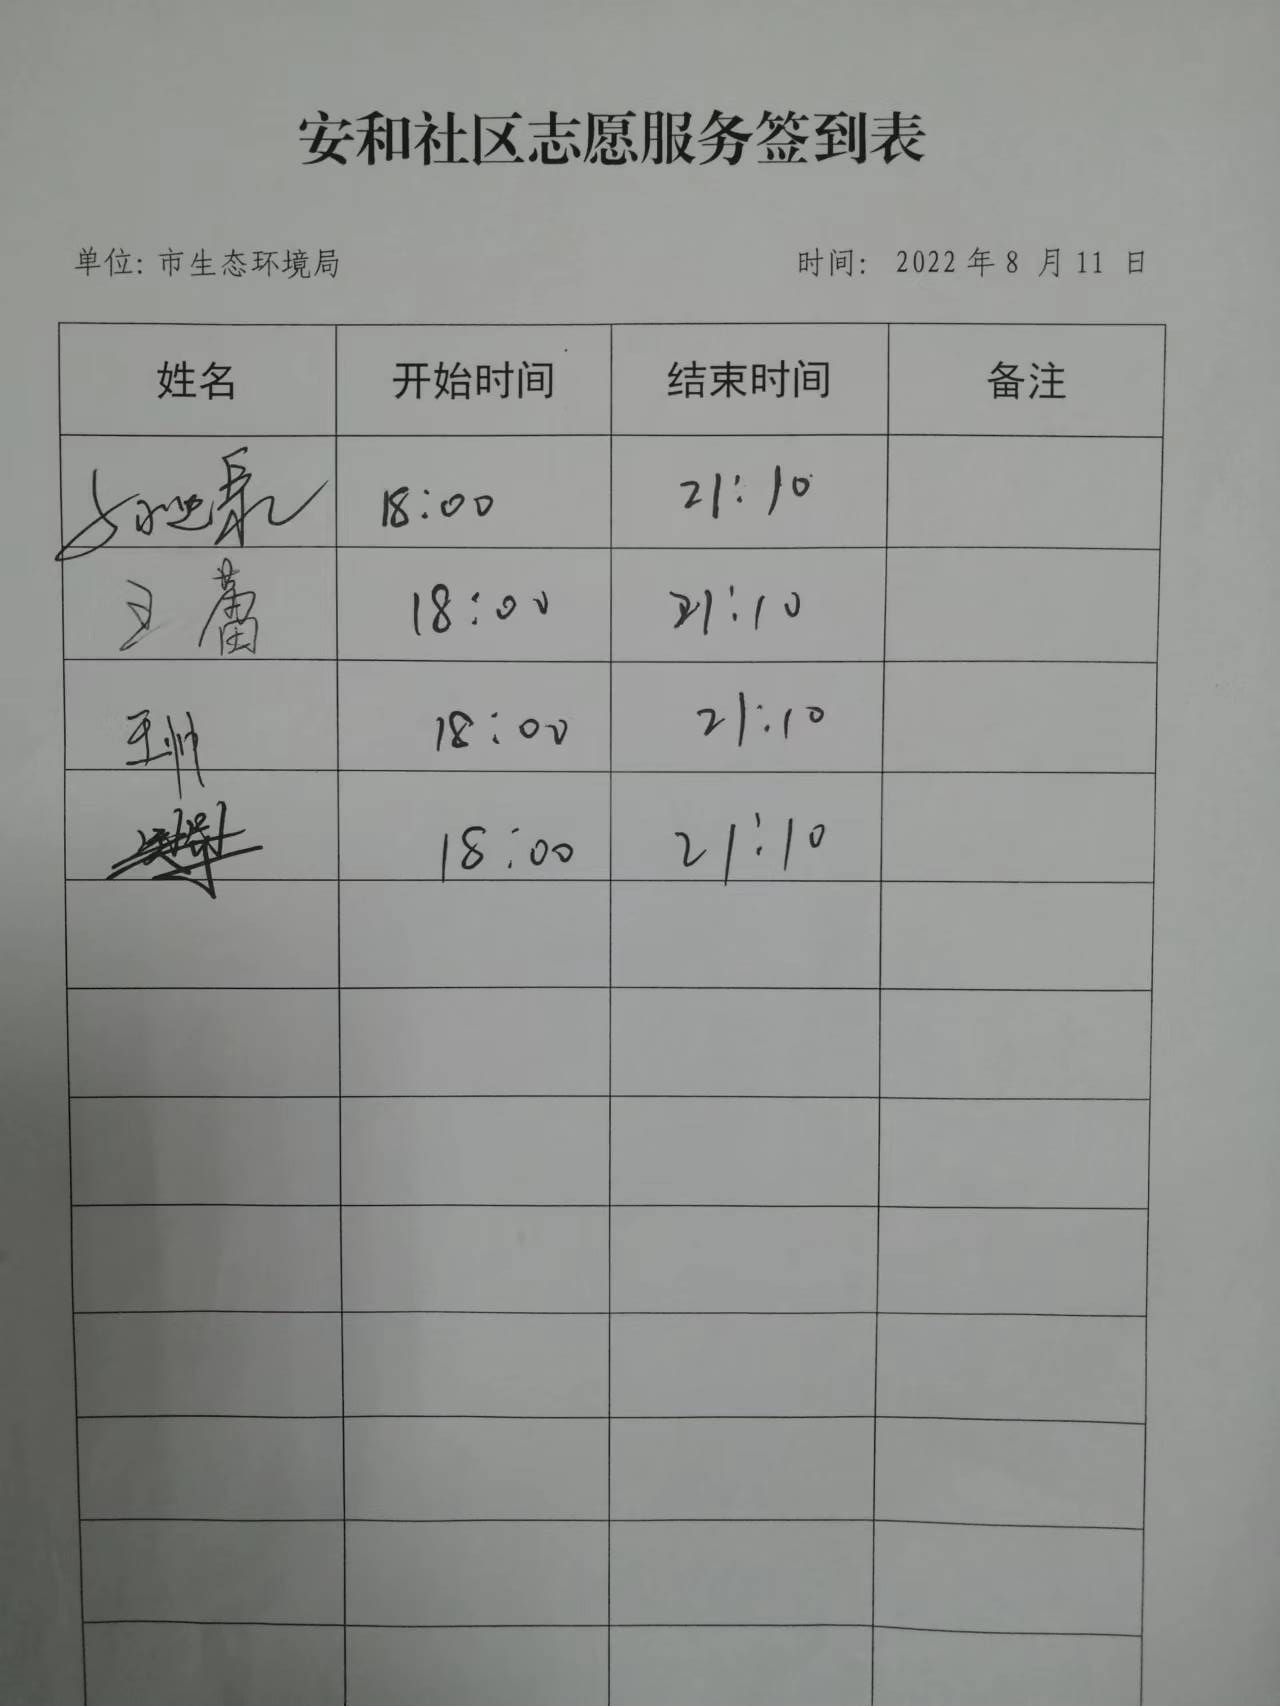 安和社区志愿服务签到表
单位: 市生态环境局 时间: 2022年8月11日
姓名 开始时间 结束时间 备注
18:00 21:10
王蕾 18:00 21:10
王帅 18:00 21:10
18:00 21:10